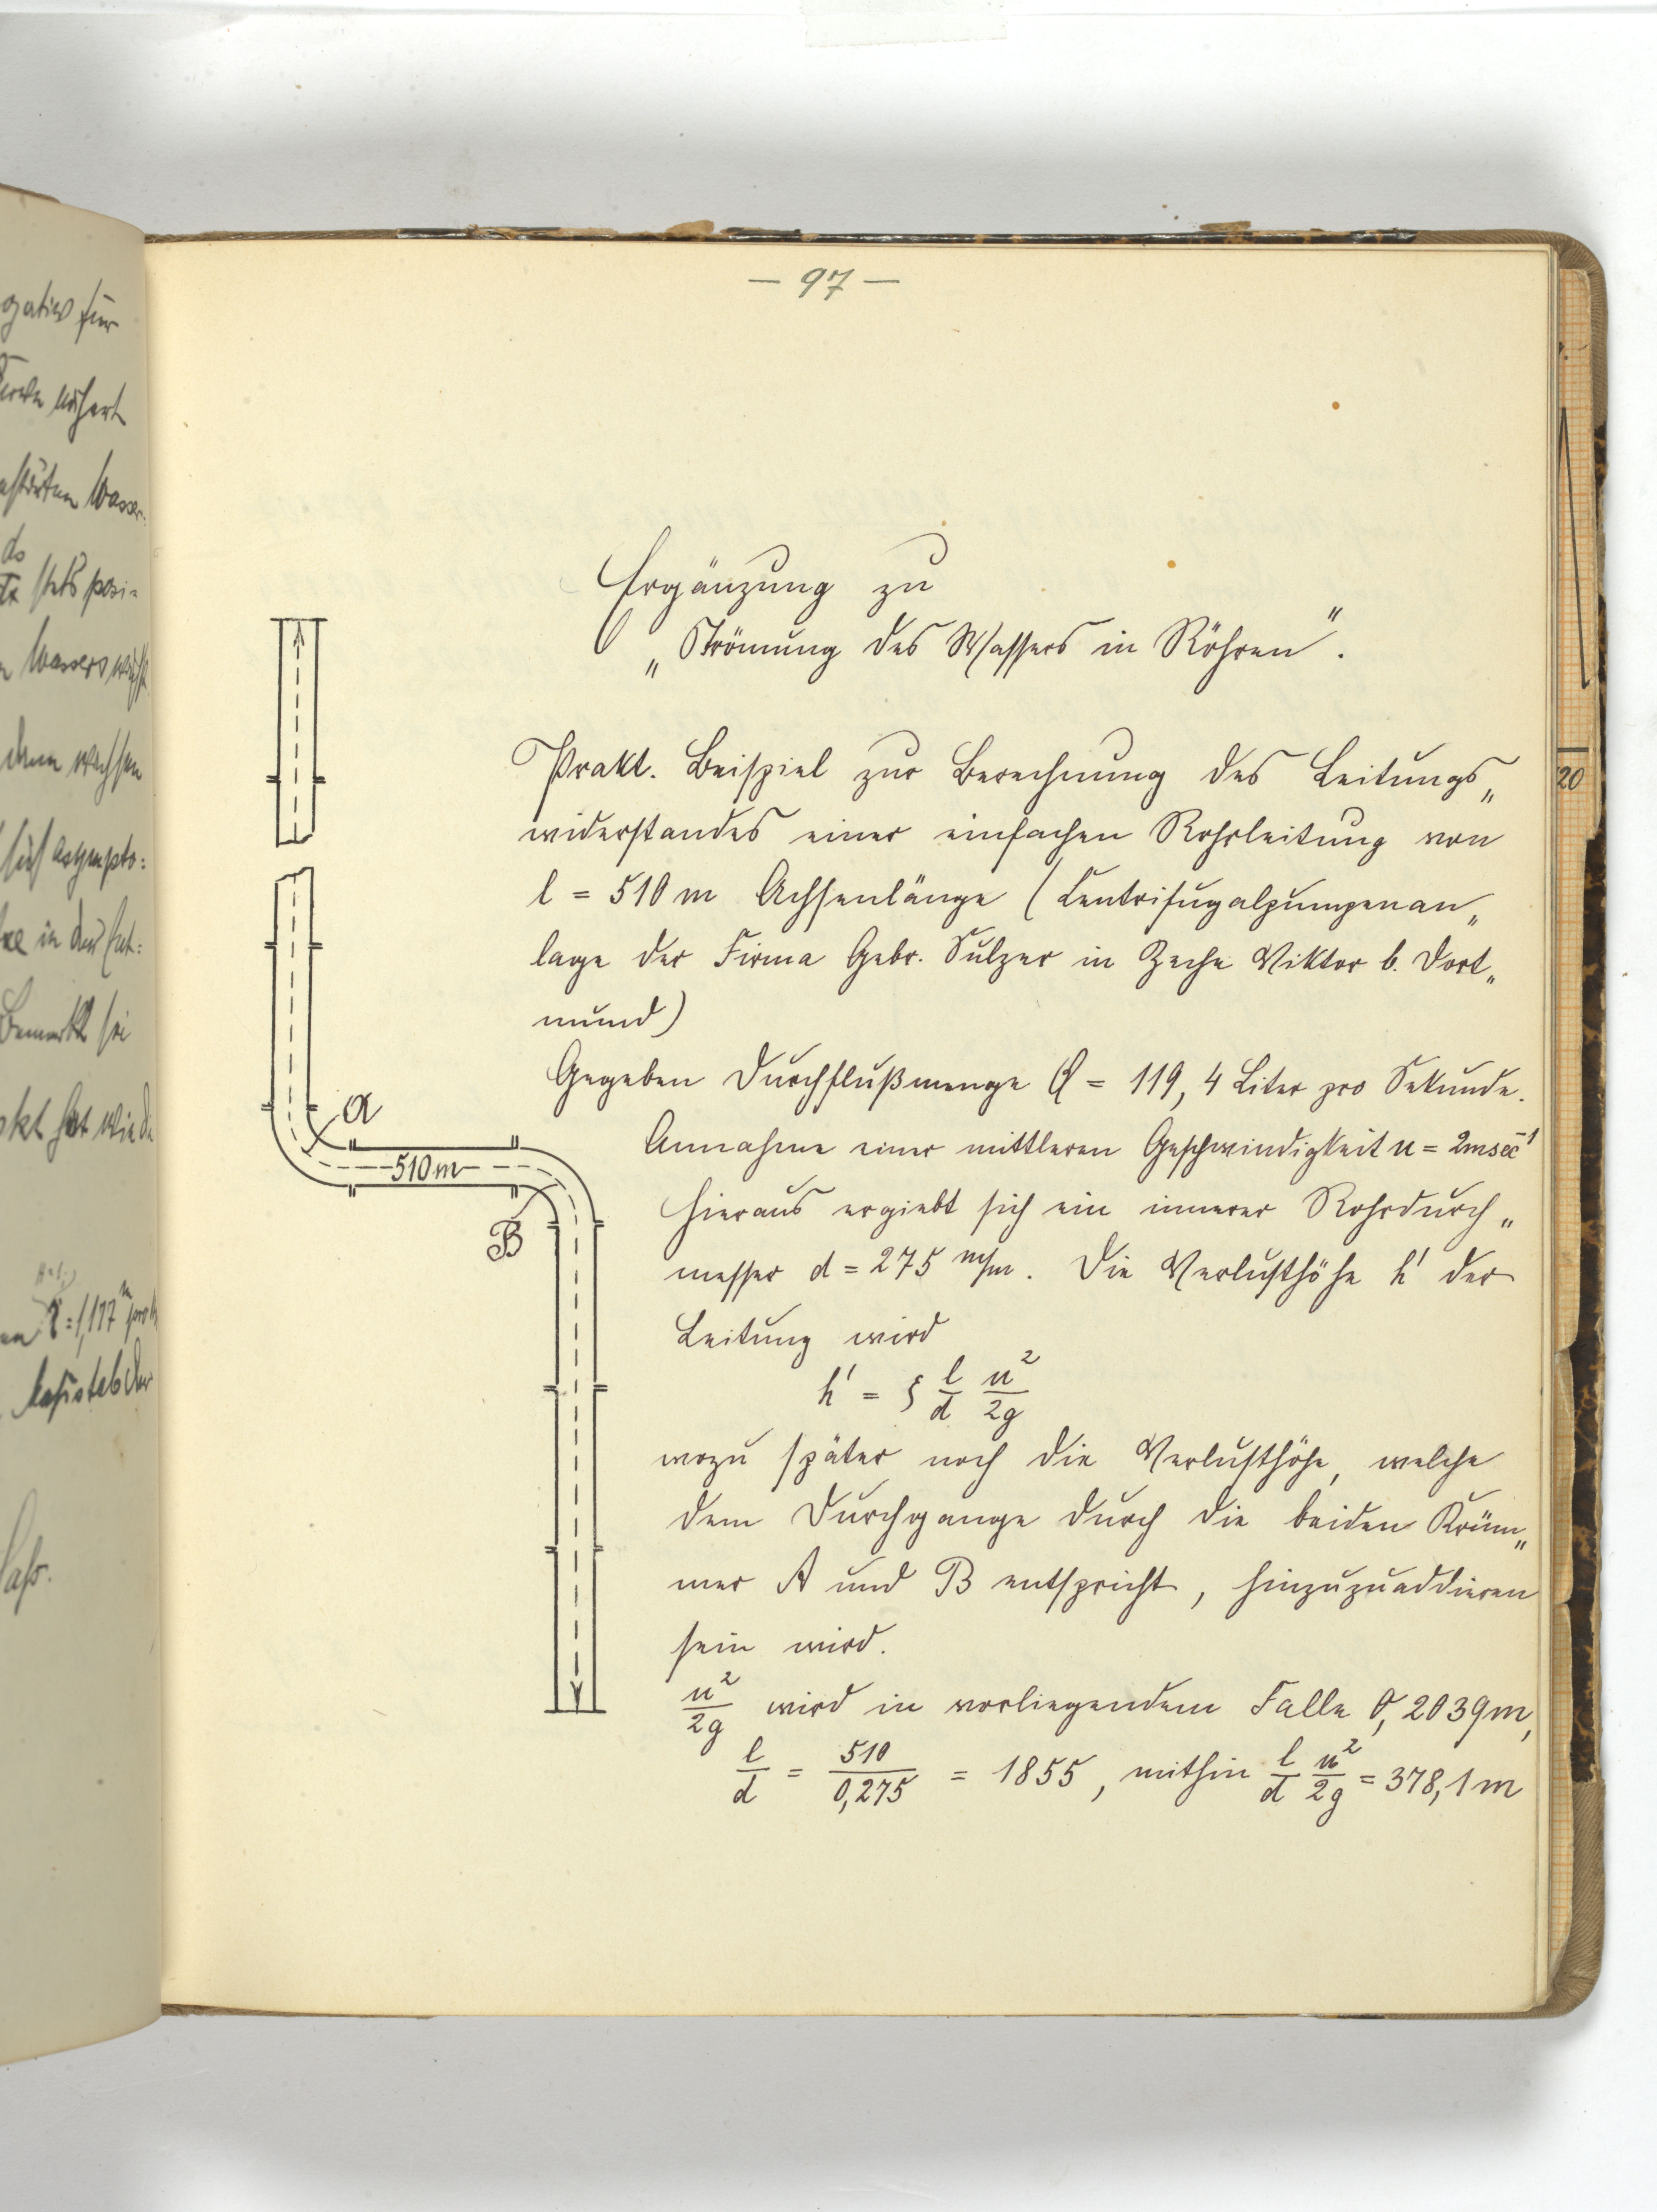 — 97 —
Ergänzung zu
„Strömung des Wassers in Röhren".
Prakt. Beispiel zur Berechnung des Leitungs„
widerstandes einer einfachen Rohrleitung von
l = 510 m Achsenlänge (Centrifugalpumpenan„
lage der Firma Gebr. Sulzer in Zeche Viktor b. Dort„
mund)
Gegeben Durchflußmenge Q = 119,4 Liter pro Sekunde.
Annahme einer mittleren Geschwindigkeit u = 2 m sec⁻¹
Hieraus ergiebt sich ein innerer Rohrdurch„
messer d = 275 m/m. Die Verlusthöhe h' der
Leitung wird
h' = ξ l/d u²/2g
wozu später noch die Verlusthöhe, welche
dem Durchgange durch die beiden Krüm„
mer A und B entspricht, hinzuzuaddieren
sein wird.
u²/2g wird in vorliegendem Falle 0,2039 m,
l/d = 510/0,275 = 1855, mithin l/d u²/2g = 378,1 m
A
510 m
B
20
gativ für
nähert
Wasser-
ds
stets posi-
Wassers wächst
wachsen
sich asympto-
in der Ent-
Bemerkt sei
hat wieder
= 1,177 m pro